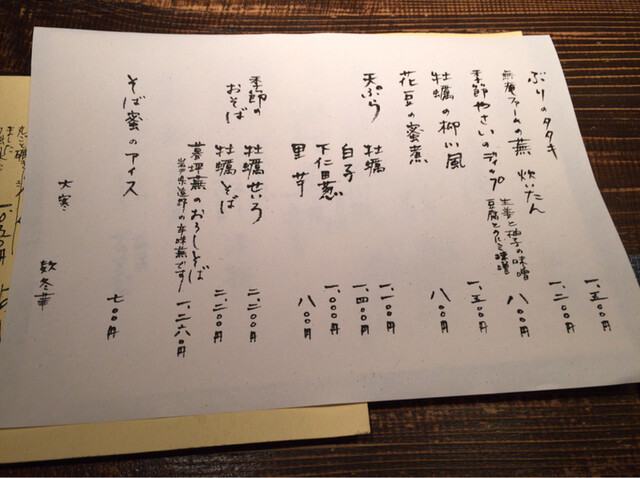 ぶりのタタキ 一、五〇〇円
無庵ファームの蕪 炊いたん 一、二〇〇円
季節やさいのディップ 八〇〇円
生姜と柚子の味噌
豆腐とくるみ味噌
牡蠣の柳川風 一、五〇〇円
花豆の蜜煮 八〇〇円
天ぷら 牡蠣 一、一〇〇円
白子 一、四〇〇円
下仁田葱 一、〇〇〇円
里芋 八〇〇円
季節の
おそば
牡蠣せいろ 二、二〇〇円
牡蠣そば 二、二〇〇円
暮坪蕪のおろしそば 一、二六〇円
岩手県遠野の辛味蕪です!
そば蜜のアイス 七〇〇円
大寒
款冬華